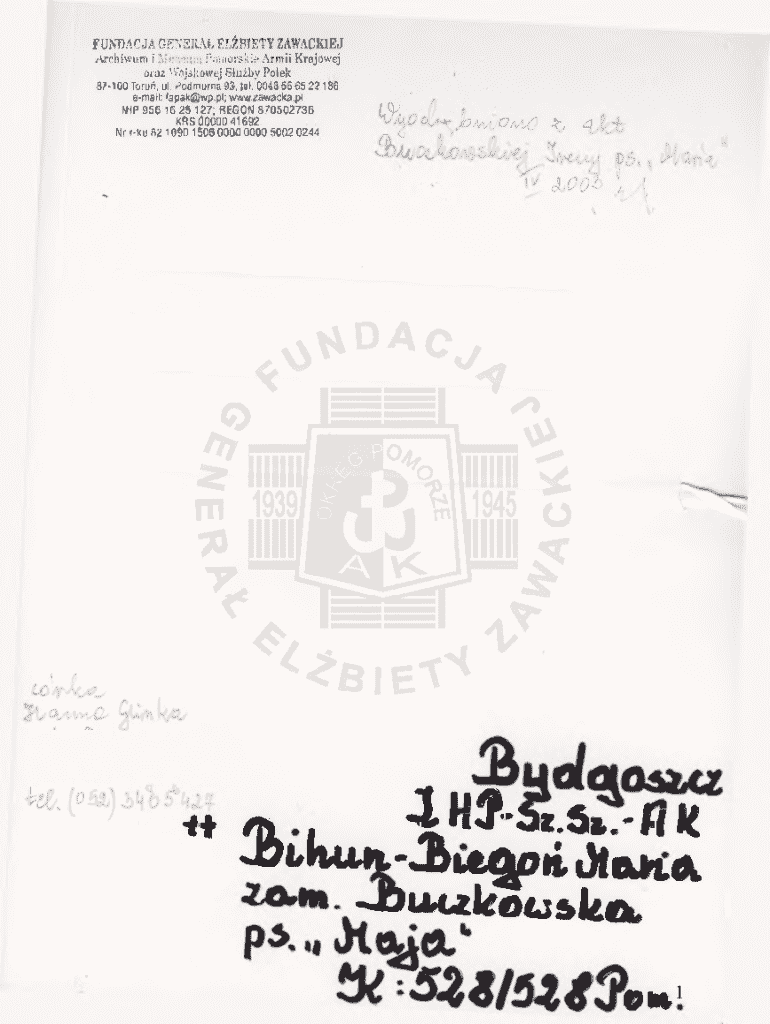 FUNDACJA GENERAŁ ELŻBIETY ZAWACKIEJ
Archiwum i Muzeum Pomorskie Armii Krajowej
oraz Wojskowej Służby Polek
87-100 Toruń, ul. Podmurna 93, tel. 0048 56 65 22 186
e-mail: fapak@wp.pl; www.zawacka.pl
NIP 956 16 25 127; REGON 870502736
KRS 00000 41692
Nr r-ku 82 1090 1506 0000 0000 5002 0244
Wyodrębniono z akt
Buczkowskiej Ireny ps. „Maria"
IV 2003 r.
FUNDACJA GENERAŁ ELŻBIETY ZAWACKIEJ
OKRĘG POMORZE
1939
1945
AK
córka
Hanna Glinka
tel. (052) 3485427
Bydgoszcz
I HP-Sz.Sz.-AK
++ Bihun-Biegoń Maria
zam. Buczkowska
ps. „Maja"
K: 528/528 Pom.
1